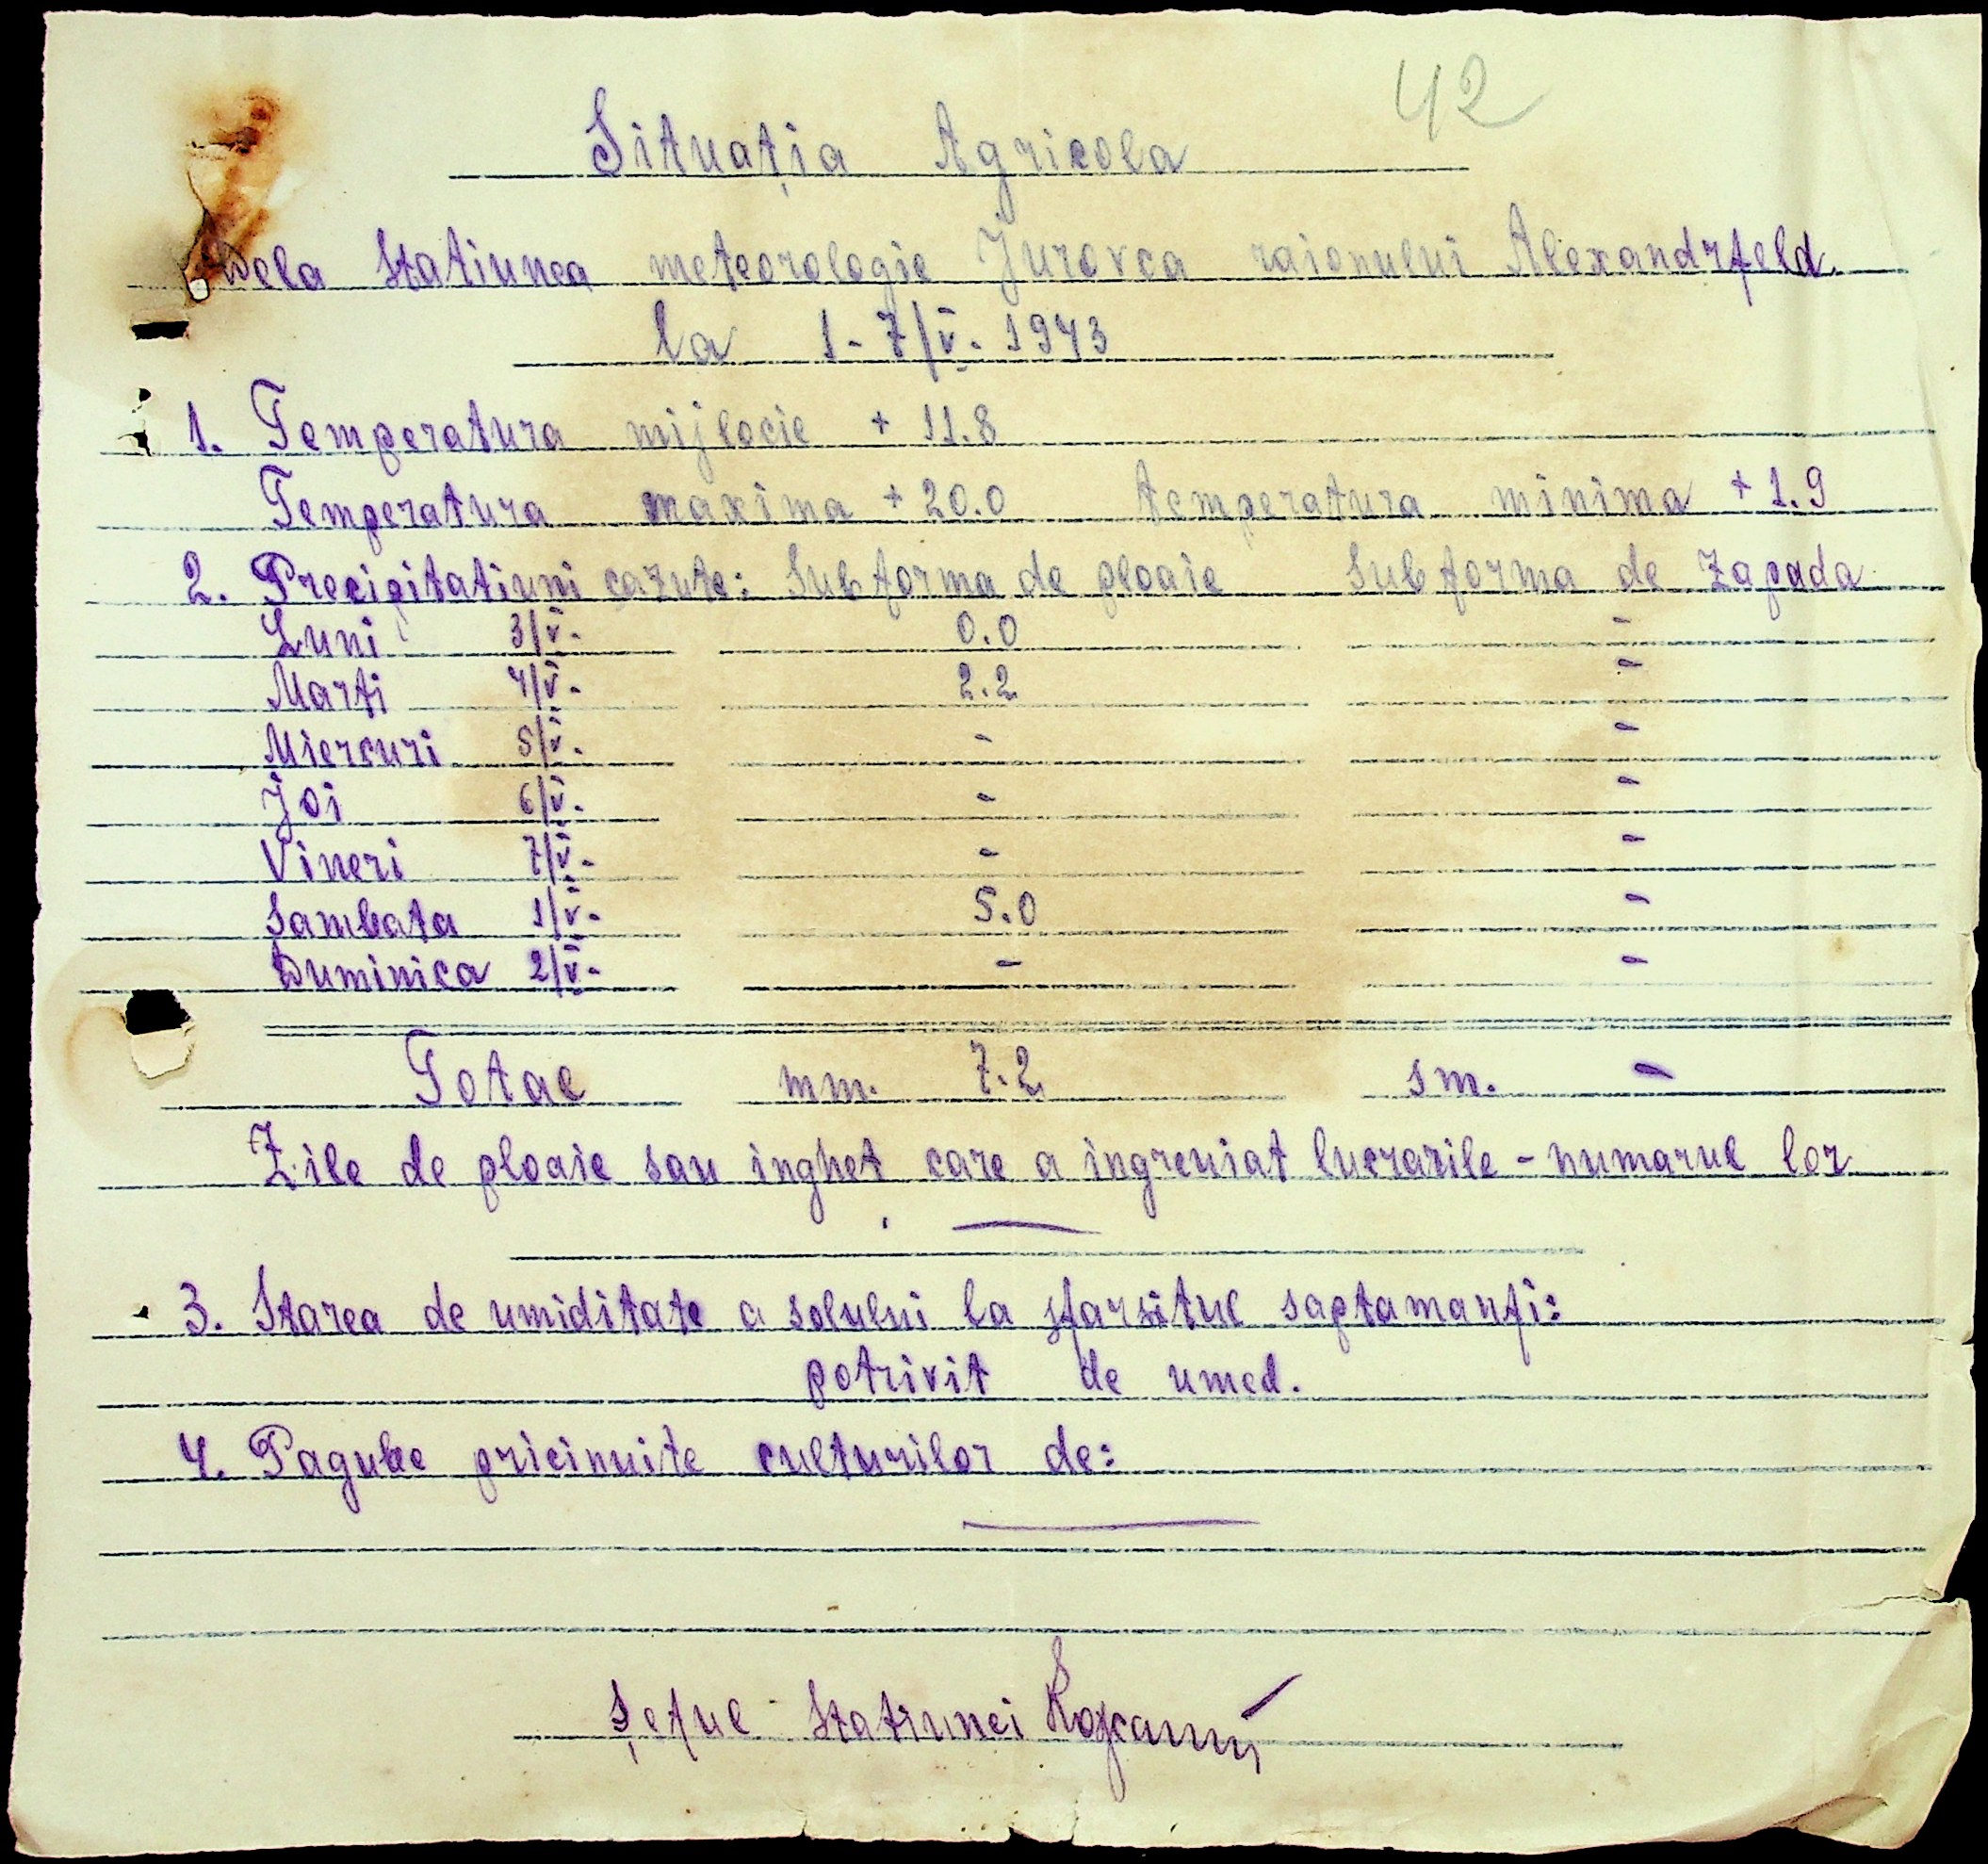 42
Situaţia Agricola
Dela Statiunea meteorologie Jurovca raionului Alexandrfeld.
la 1-7/V. 1943
1. Temperatura mijlocie + 11.8
Temperatura maxima + 20.0 temperatura minima + 1.9
2. Precipitatiuni cazute: Sub forma de ploaie Sub forma de Zapada
Luni 3/V. 0.0 -
Marti 4/V. 2.2 -
Miercuri 5/V. - -
Joi 6/V. - -
Vineri 7/V. - -
Sambata 1/V. 5.0 -
Duminica 2/V. - -
Total mm. 7.2 sm. -
Zile de ploaie sau inghet care a ingreuiat lucrarile - numarul lor
—
3. Starea de umiditate a solului la sfarsitul saptamanii:
potrivit de umed.
4. Pagube pricinuite culturilor de:
—
Şeful Statiunei